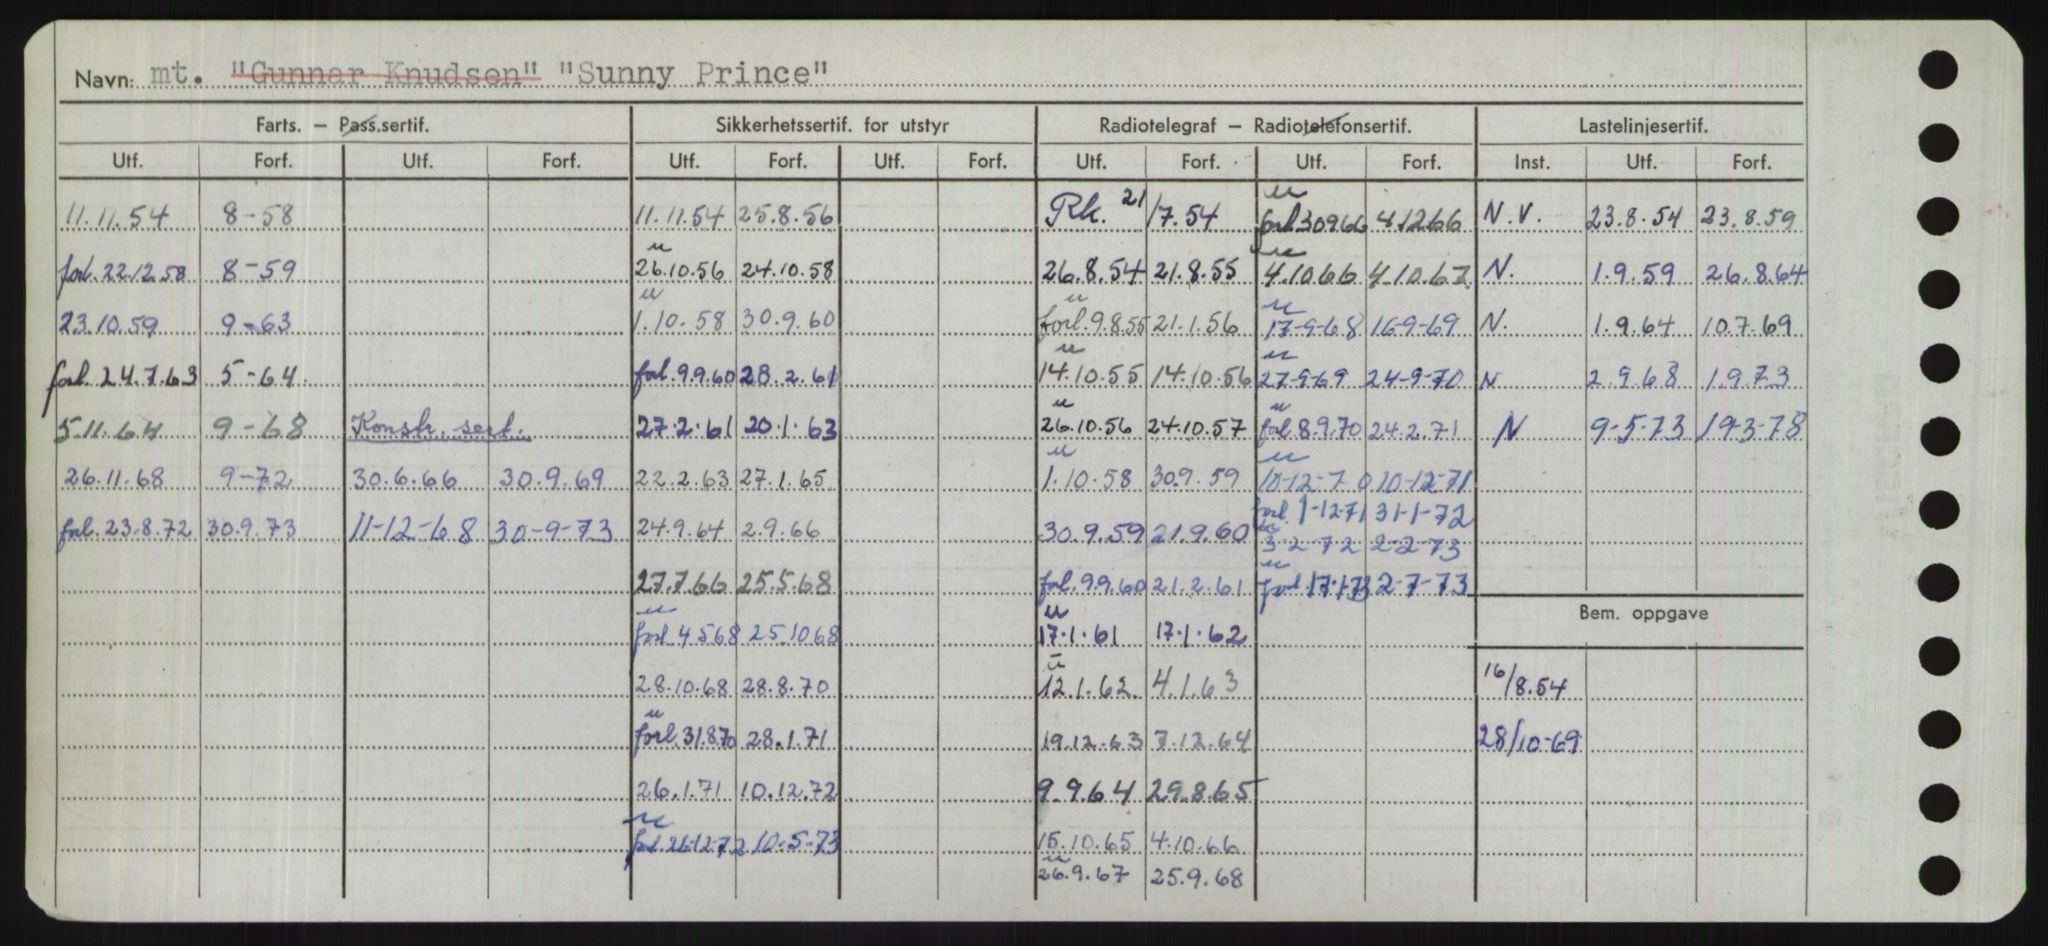 Navn: mt. "Gunnar Knudsen" "Sunny Prince"
Farts. – Pass.sertif. Sikkerhetssertif. for utstyr Radiotelegraf – Radiotelefonsertif. Lastelinjesertif.
Utf. Forf. Utf. Forf. Utf. Forf. Utf. Forf. Utf. Forf. Utf. Forf. Inst. Utf. Forf.
11.11.54 8-58 11.11.54 25.8.56 Rk. 21/7.54 u forl 30966 4.12.66 N.V. 23.8.54 23.8.59
forl. 22.12.58 8-59 u 26.10.56 24.10.58 26.8.54 21.8.55 u 4.10.66 4.10.67 N. 1.9.59 26.8.64
23.10.59 9-63 u 1.10.58 30.9.60 u forl. 9.8.55 21.1.56 u 17-9-68 16-9-69 N. 1.9.64 10.7.69
forl. 24.7.63 5-64 forl. 9.9.60 28.2.61 u 14.10.55 14.10.56 u 27-9-69 24-9-70 N 2.9.68 1.9.73
5.11.64 9-68 Konstr. sert. 27.2.61 20.1.63 u 26.10.56 24.10.57 u forl 8.9.70 24.2.71 N 9-5-73 19-3-78
26.11.68 9-72 30.6.66 30.9.69 22.2.63 27.1.65 u 1.10.58 30.9.59 u 10-12-70 10-12-71
forl. 1-12-71 31-1-72
forl. 23.8.72 30.9.73 11-12-68 30-9-73 24.9.64 2.9.66 30.9.59 21.9.60 3-2-72 2-2-73
27.7.66 25.5.68 forl. 9.9.60 21.2.61 u forl 17.1.73 2-7-73
Bem. oppgave
u forl 4.5.68 25.10.68 u 17.1.61 17.1.62
28.10.68 28.8.70 u 12.1.62. 4.1.63 16/8.54
u forl. 31.8.70 28.1.71 19.12.63 7.12.64 28/10-69
26.1.71 10.12.72 9.9.64 29.8.65
u forl. 26-12-72 10-5-73 15.10.65 4.10.66
u 26.9.67 25.9.68